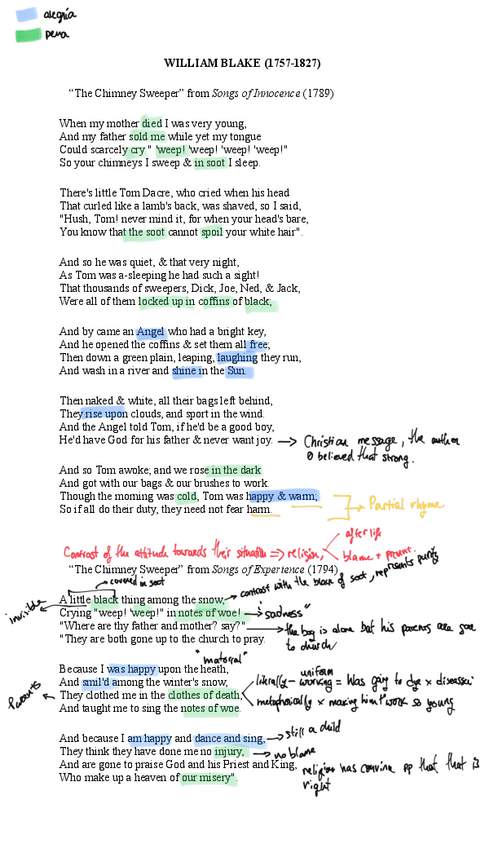 alegría
pena
WILLIAM BLAKE (1757-1827)
"The Chimney Sweeper" from Songs of Innocence (1789)
When my mother died I was very young,
And my father sold me while yet my tongue
Could scarcely cry " 'weep! 'weep! 'weep! 'weep!"
So your chimneys I sweep & in soot I sleep.
There's little Tom Dacre, who cried when his head
That curled like a lamb's back, was shaved, so I said,
"Hush, Tom! never mind it, for when your head's bare,
You know that the soot cannot spoil your white hair".
And so he was quiet, & that very night,
As Tom was a-sleeping he had such a sight!
That thousands of sweepers, Dick, Joe, Ned, & Jack,
Were all of them locked up in coffins of black;
And by came an Angel who had a bright key,
And he opened the coffins & set them all free;
Then down a green plain, leaping, laughing they run,
And wash in a river and shine in the Sun.
Then naked & white, all their bags left behind,
They rise upon clouds, and sport in the wind.
And the Angel told Tom, if he'd be a good boy,
He'd have God for his father & never want joy. → Christian message, the author
believed that strong.
And so Tom awoke; and we rose in the dark
And got with our bags & our brushes to work.
Though the morning was cold, Tom was happy & warm;
So if all do their duty, they need not fear harm.
Partial rhyme
Contrast of the attitude towards their situation ⇒ religion
afterlife
blame + present.
"The Chimney Sweeper" from Songs of Experience (1794)
covered in soot
contrast with the black of soot, represents purity
invisible
A little black thing among the snow,
Crying "weep! 'weep!" in notes of woe! → "sadness"
"Where are thy father and mother? say?"
the boy is alone but his parents are gone
to church
"They are both gone up to the church to pray.
"material"
Because I was happy upon the heath,
And smil'd among the winter's snow,
They clothed me in the clothes of death,
And taught me to sing the notes of woe.
Parents
uniform
literally - working = was going to die x disease
metaphorically x making him work so young
And because I am happy and dance and sing, → still a child
They think they have done me no injury, → no blame
And are gone to praise God and his Priest and King,
Who make up a heaven of our misery".
religion has convince pp that that is
right